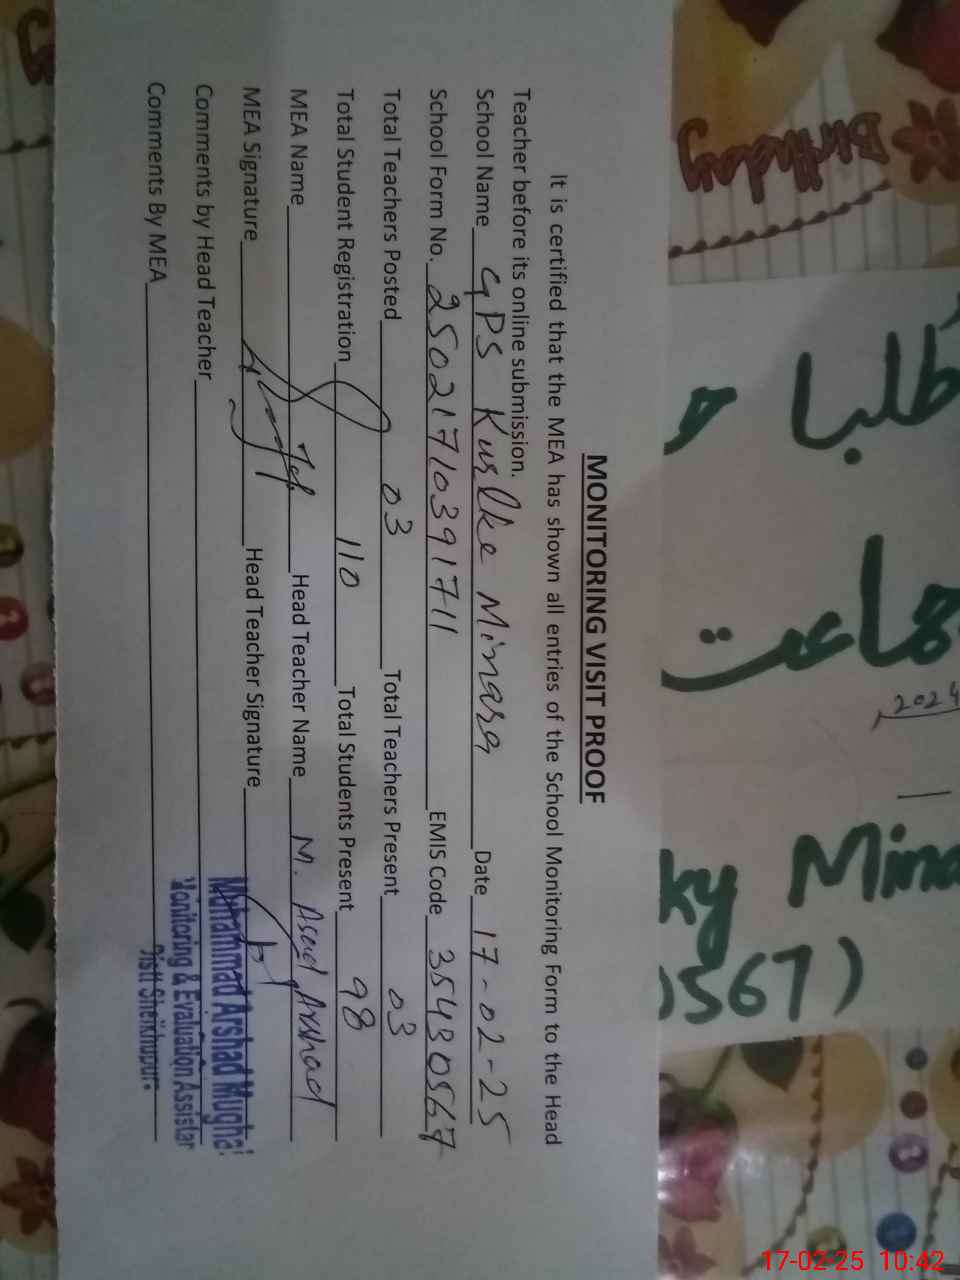 MONITORING VISIT PROOF
It is certified that the MEA has shown all entries of the School Monitoring Form to the Head
Teacher before its online submission.
School Name GPS Kurlke Minara Date 17-02-25
School Form No. 25021710391711 EMIS Code 35430567
Total Teachers Posted 03 Total Teachers Present 03
Total Student Registration 110 Total Students Present 98
MEA Name Head Teacher Name M. Asad Arshad
MEA Signature Head Teacher Signature
Comments by Head Teacher
Comments By MEA
Muhammad Arshad Mughal
Monitoring & Evaluation Assistan
Distt Sheikhupura
طلبا
جماعت
2024
ky Mina
0567)
Birthday
17-02-25 10:42